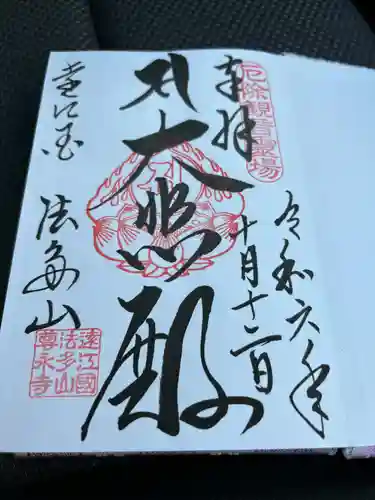 令和六年
十月十二日
奉拝
厄除観音霊場
大悲殿
遠江国
法多山
遠江國
法多山
尊永寺